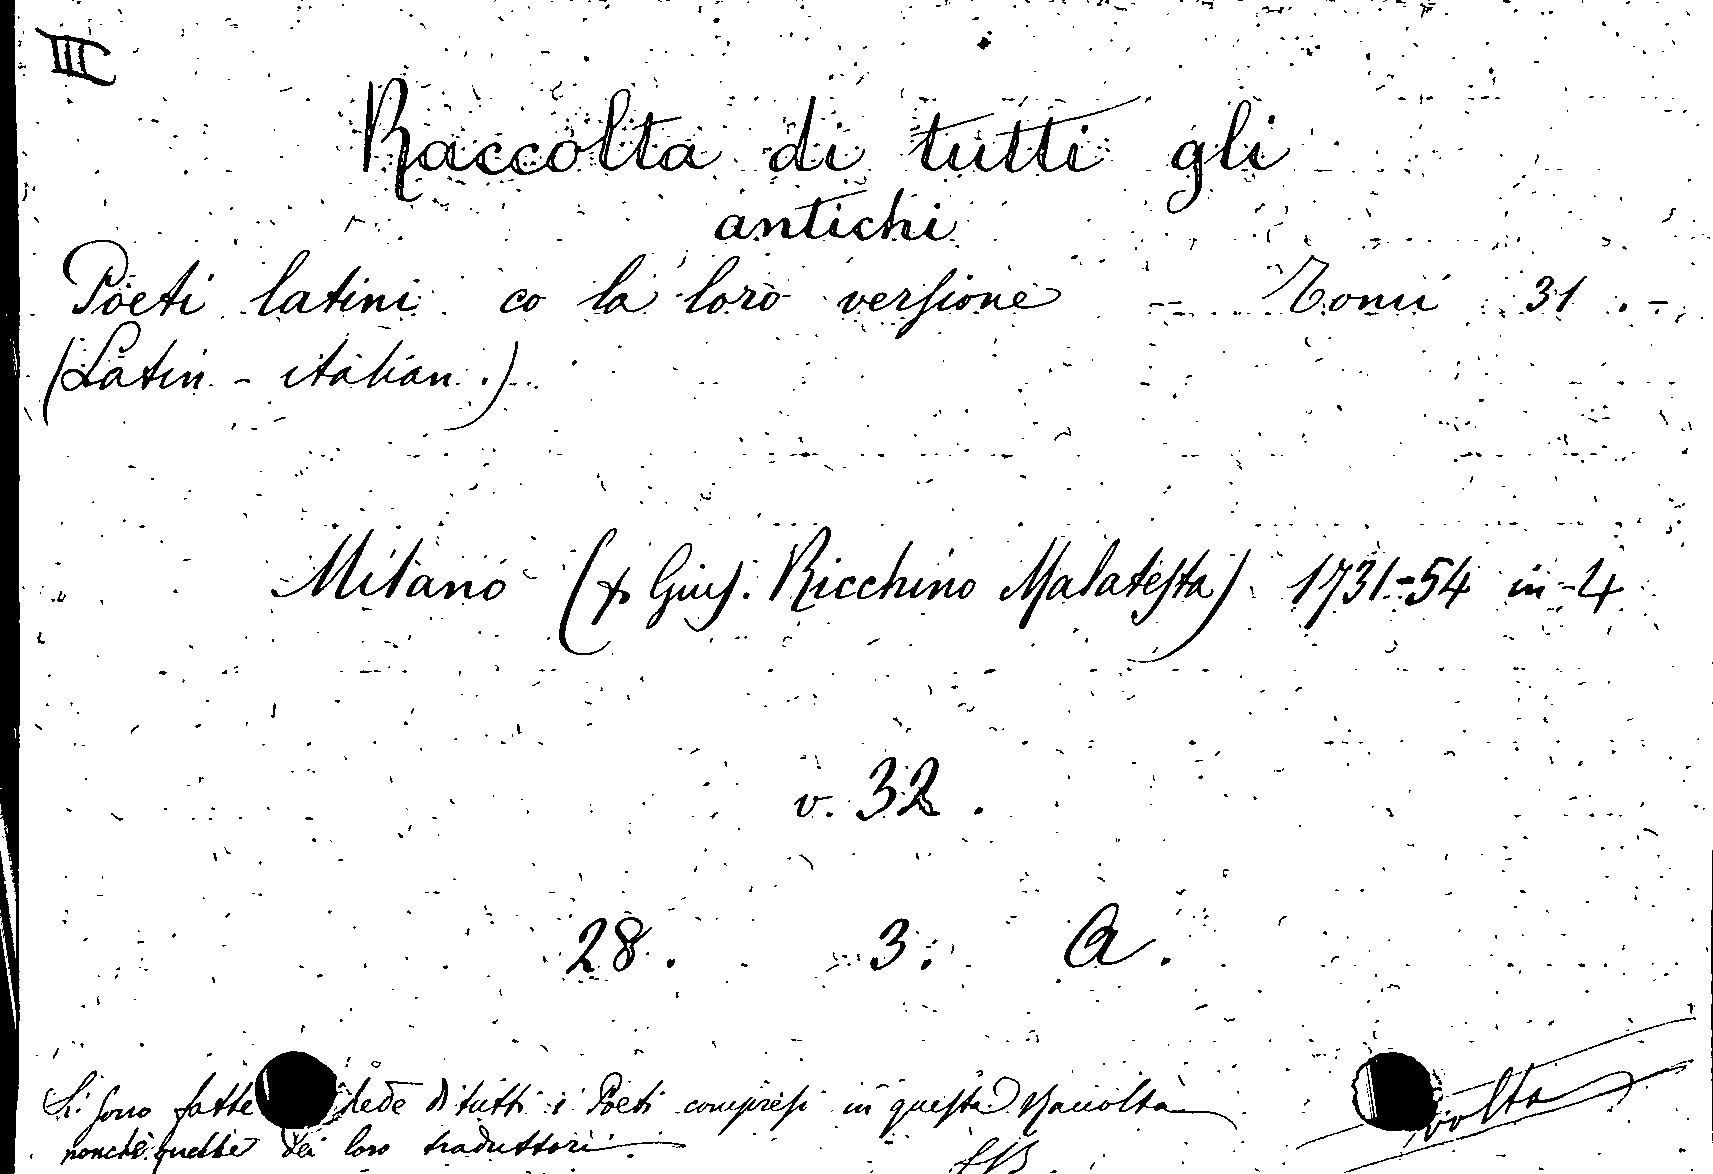 III
Raccolta di tutti gli
antichi
Poeti latini co la loro versione -- Tomi 31.-
(Latin - italian.)
Milano (x Gius. Ricchino Malatesta) 1731-54 in-4
v. 32.
28. 3. A.
Si sono fatte schede di tutti i Poeti compresi in questa Raccolta
nonchè quelle dei loro traduttori.